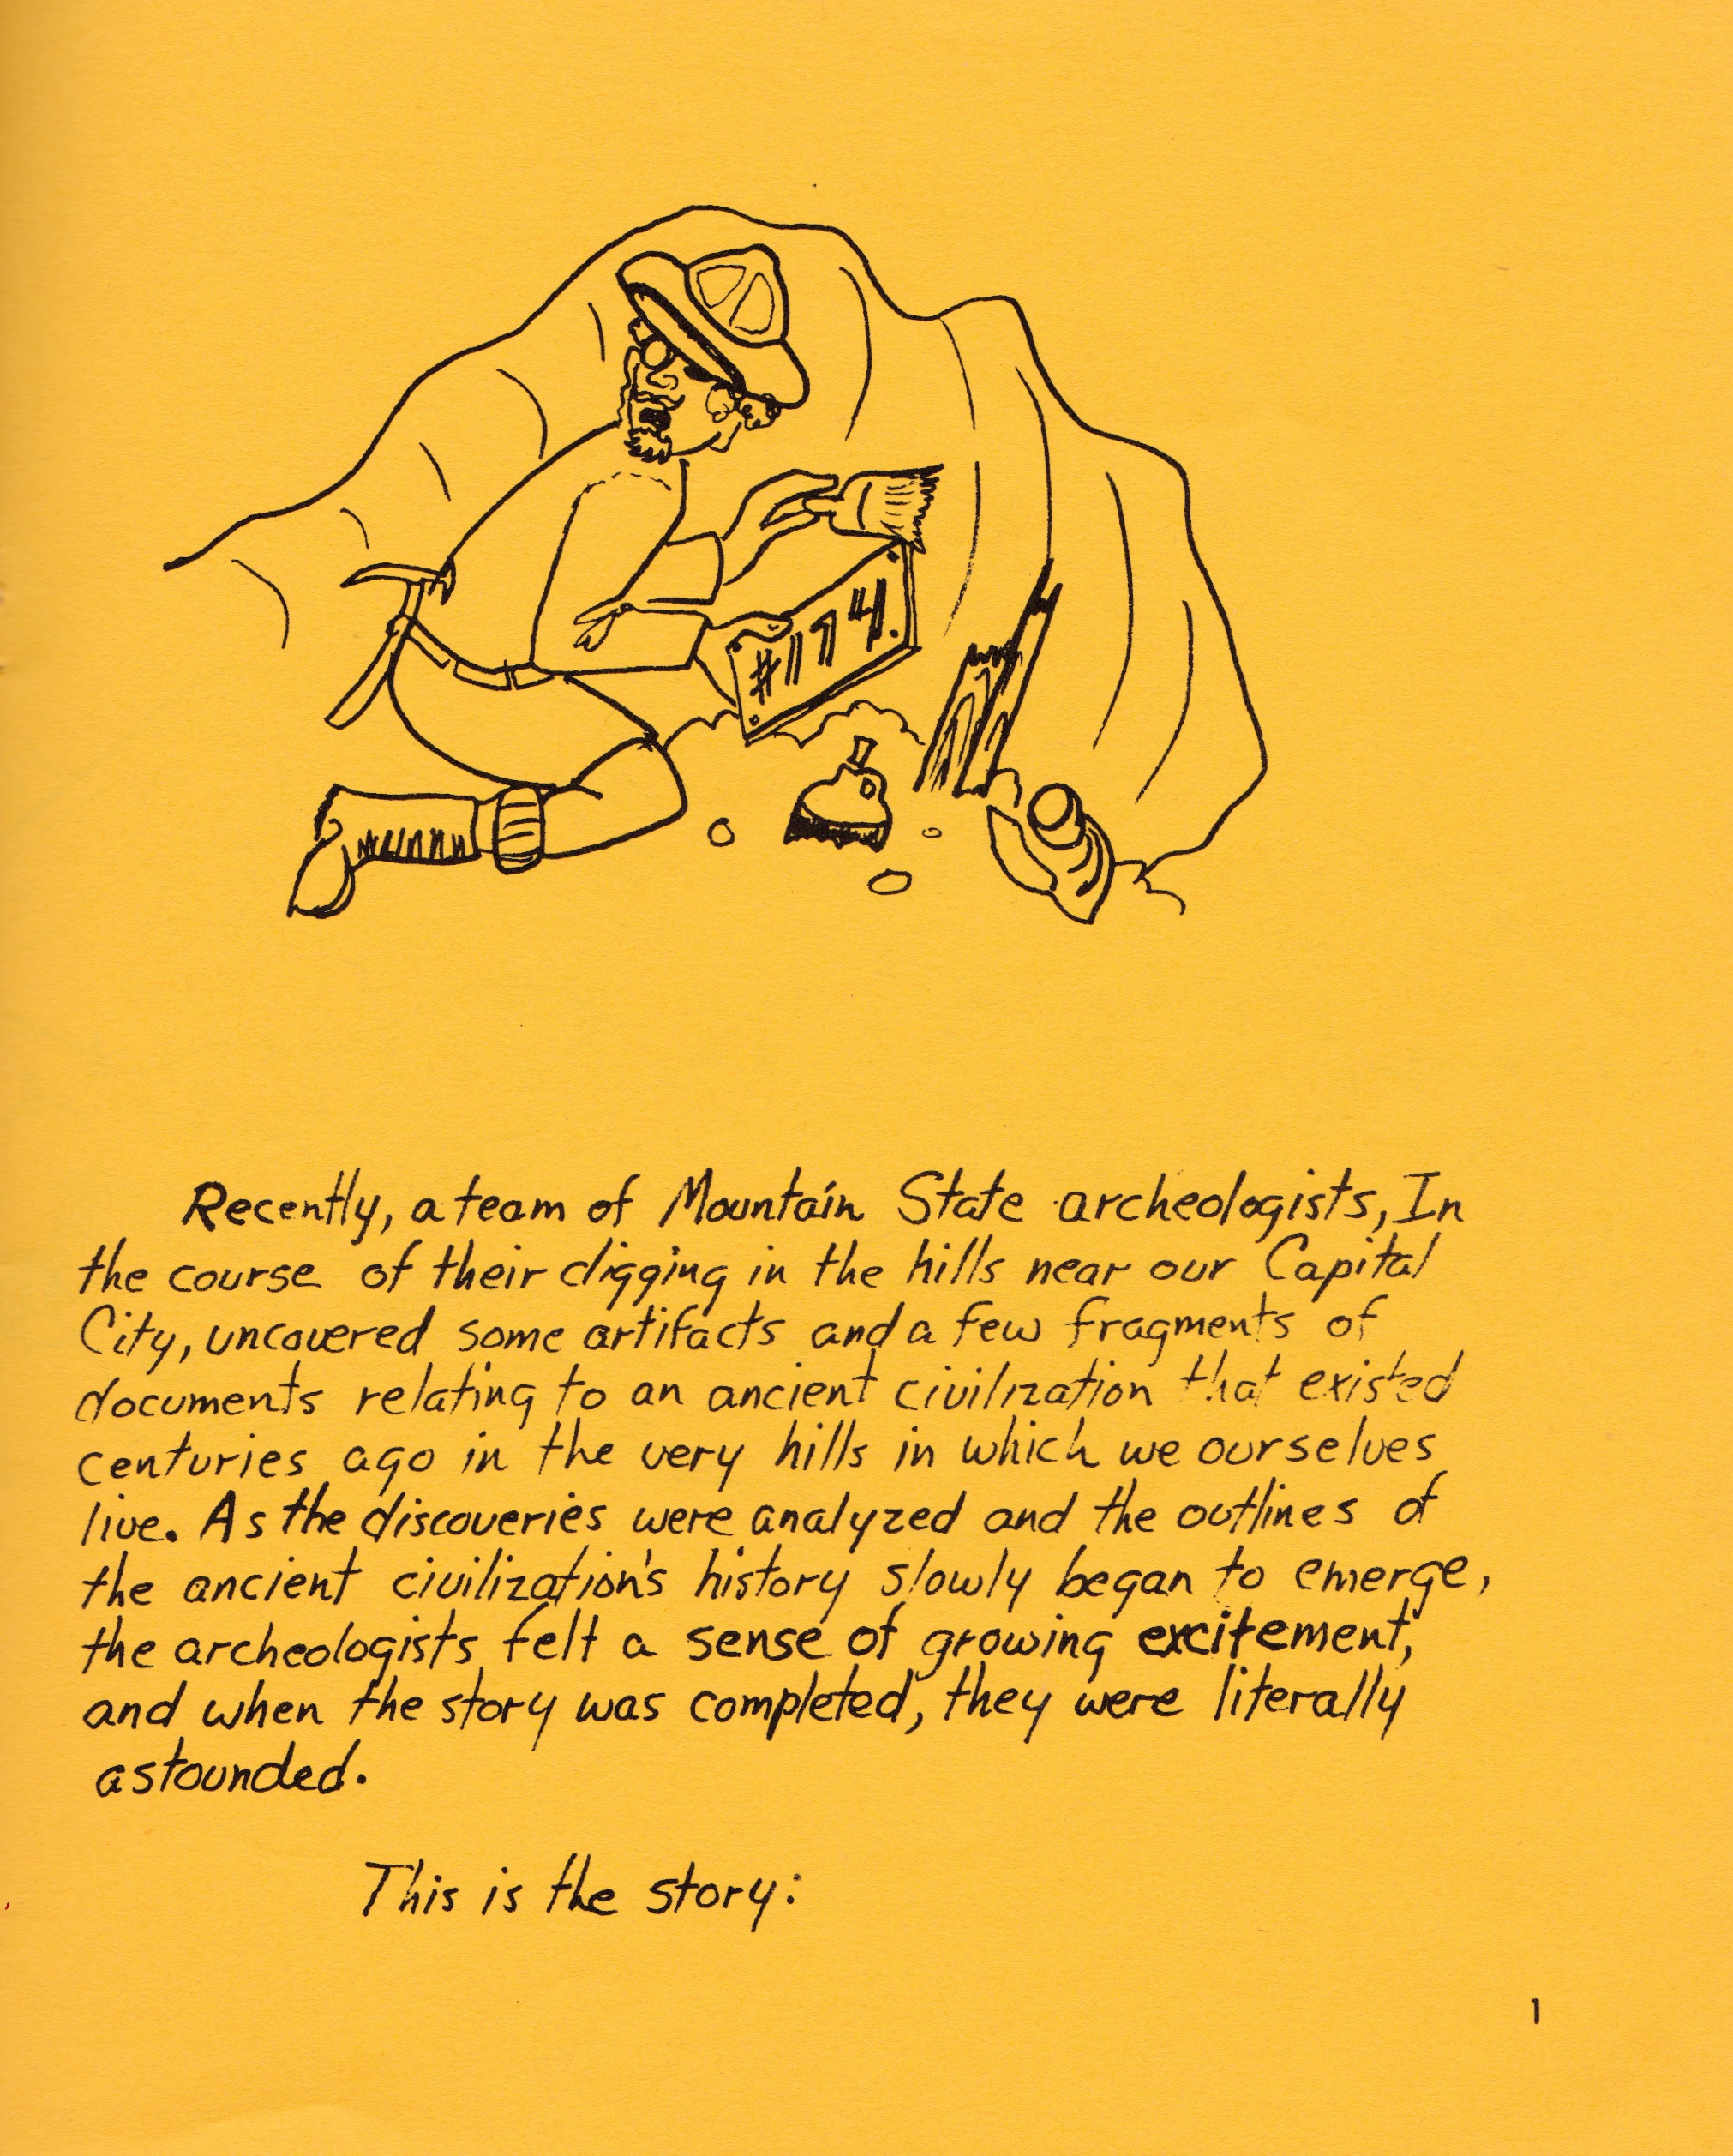 #174
Recently, a team of Mountain State archeologists, In
the course of their digging in the hills near our Capital
City, uncovered some artifacts and a few fragments of
documents relating to an ancient civilization that existed
centuries ago in the very hills in which we ourselves
live. As the discoveries were analyzed and the outlines of
the ancient civilization's history slowly began to emerge,
the archeologists felt a sense of growing excitement,
and when the story was completed, they were literally
astounded.
This is the story:
1